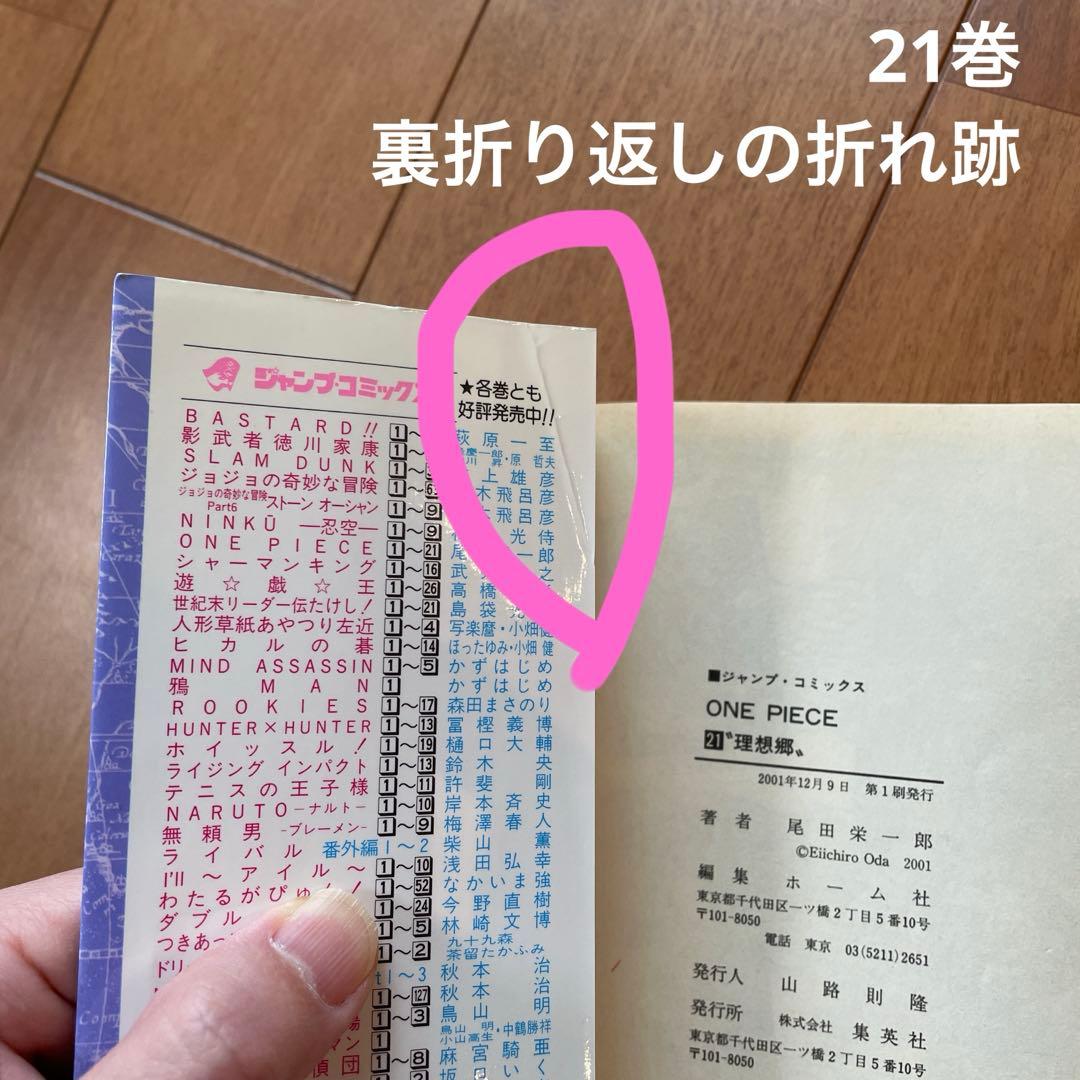 21巻
裏折り返しの折れ跡
ジャンプ・コミックス
★各巻とも
好評発売中!!
BASTARD!! 1〜 萩原一至
影武者徳川家康 1〜 原 哲夫
SLAM DUNK 1〜 上雄彦
ジョジョの奇妙な冒険 1〜63 木飛呂彦
ジョジョの奇妙な冒険 Part6 ストーン オーシャン 1〜9 飛呂彦
NINKŪ —忍空— 1〜9 光侍
ONE PIECE 1〜21 尾 一郎
シャーマンキング 1〜16 武 之
遊☆戯☆王 1〜26 高橋
世紀末リーダー伝たけし! 1〜21 島袋
人形草紙あやつり左近 1〜4 写楽麿・小畑健
ヒカルの碁 1〜14 ほったゆみ・小畑 健
MIND ASSASSIN 1〜5 かずはじめ
鴉 MAN 1 かずはじめ
ROOKIES 1〜17 森田まさのり
HUNTER×HUNTER 1〜13 冨樫義博
ホイッスル! 1〜19 樋口大輔
ライジング インパクト 1〜13 鈴木 央
テニスの王子様 1〜11 許斐 剛
NARUTO—ナルト— 1〜10 岸本斉史
無頼男 -ブレーメン- 1〜9 梅澤春人
ライバル 番外編1〜2 柴山 薫
I'll 〜アイル〜 1〜10 浅田弘幸
わたるがぴゅ 1〜52 なかいま強
ダブル 1〜24 今野直樹
つきあっ 1〜5 林崎文博
ドリ 1〜2 九十九森 茶留たかふみ
1〜3 秋本 治
1〜127 秋本 治
1〜3 鳥山 明
1 鳥山 明・中鶴勝祥
マン 1 小山高生
偵団 1〜8 麻宮騎亜
■ジャンプ・コミックス
ONE PIECE
21〝理想郷〟
2001年12月9日 第1刷発行
著者 尾田栄一郎
©Eiichiro Oda 2001
編集 ホーム社
東京都千代田区一ツ橋2丁目5番10号
〒101-8050
電話 東京 03(5211)2651
発行人 山路則隆
発行所 株式会社 集英社
東京都千代田区一ツ橋2丁目5番10号
〒101-8050